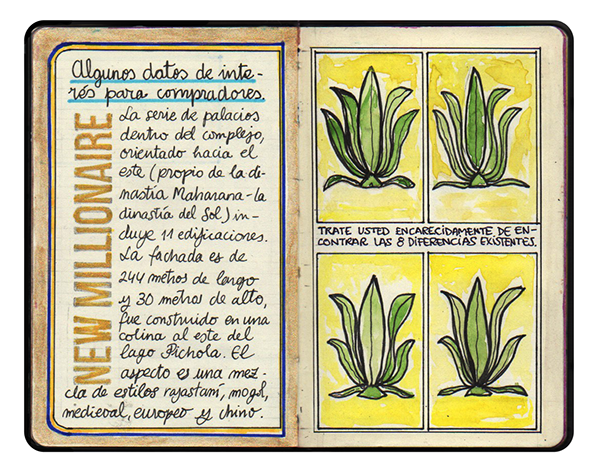 Algunos datos de inte-
rés para compradores.
NEW MILLIONAIRE
La serie de palacios
dentro del complejo,
orientado hacia el
este (propio de la di-
nastía Maharana-la
dinastía del Sol) in-
cluye 11 edificaciones.
La fachada es de
244 metros de largo
y 30 metros de alto,
fue construido en una
colina al este del
lago Pichola. El
aspecto es una mez-
cla de estilos rajastaní, mogol,
medieval, europeo y chino.
TRATE USTED ENCARECIDAMENTE DE EN-
CONTRAR LAS 8 DIFERENCIAS EXISTENTES.